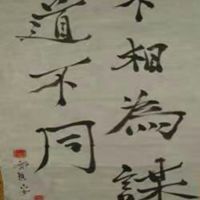 不相為謀
道不同